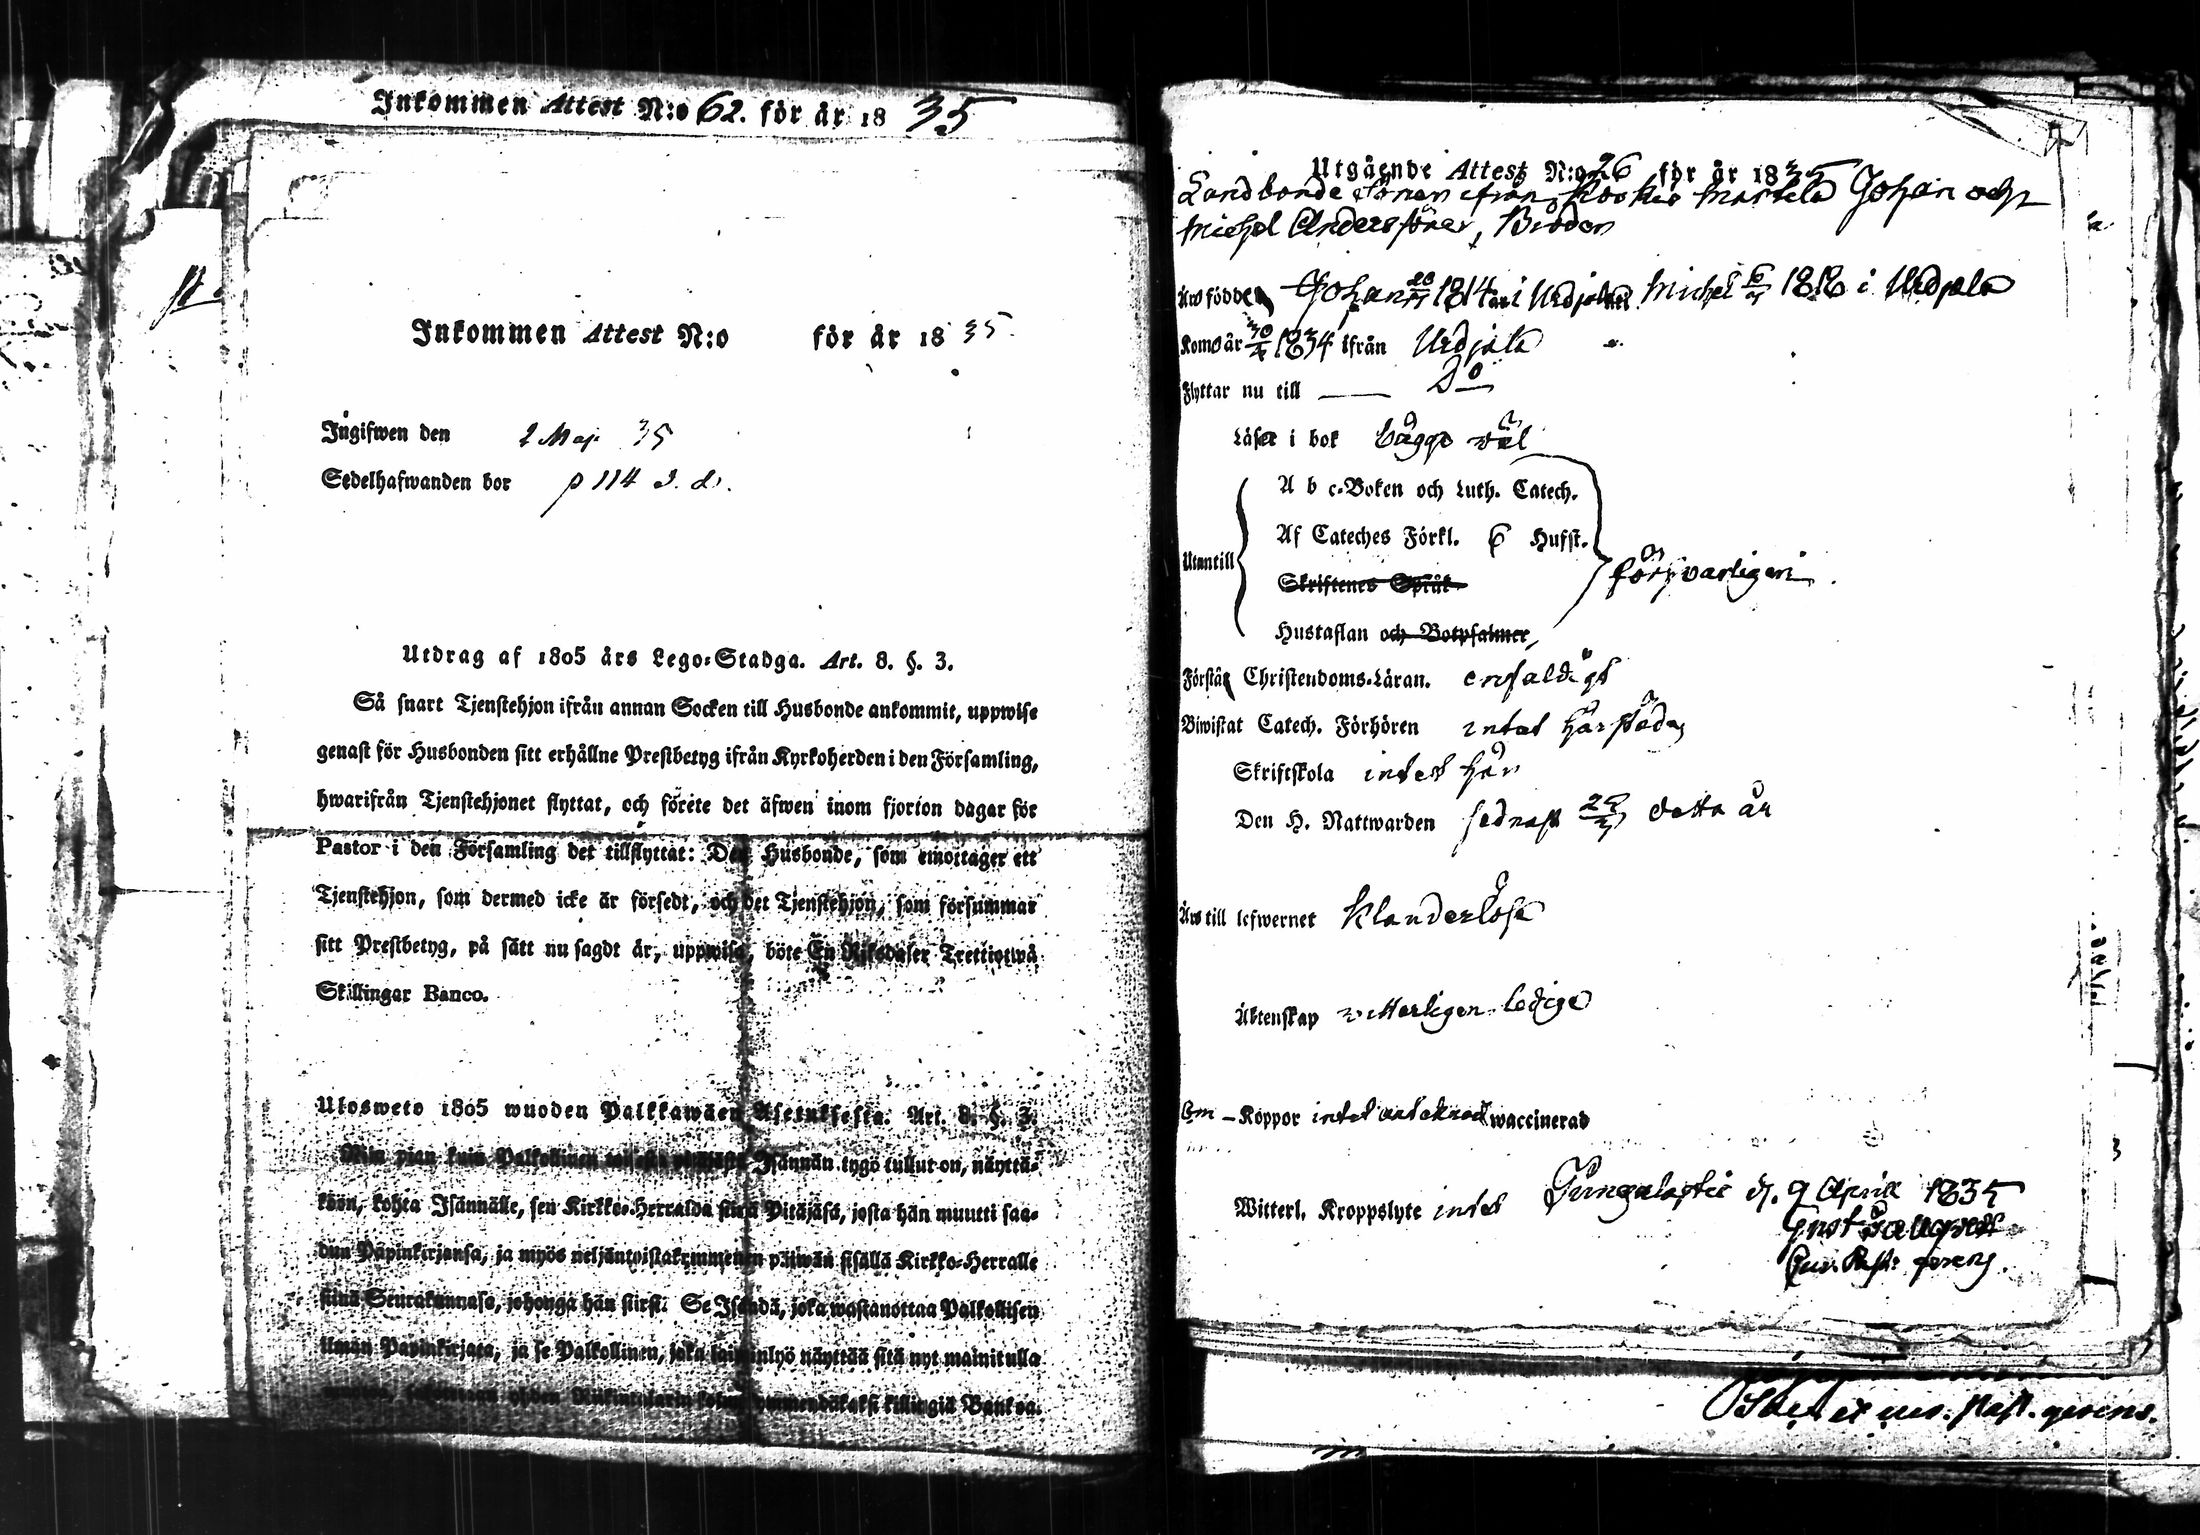 Inkommen Attest N:o 62. för år 1835
Inkommen Attest N:o för år 1835
Ingifwen den 2 Maji 35
Sedelhafwanden bor p 114
Utdrag af 1805 års Lego-Stadga. Art. 8. §. 3.
Så snart Tjenstehjon ifrån annan Socken till Husbonde ankommit, uppwise
genast för Husbonden sitt erhållne Prestbetyg ifrån Kyrkoherden i den Församling,
hwarifrån Tjenstehjonet flyttat, och förete det äfwen inom fjorton dagar för
Pastor i den Församling det tillflyttat: Den Husbonde, som emottager ett
Tjenstehjon, som dermed icke är försedt, och det Tjenstehjon, som försummar
sitt Prestbetyg, på sätt nu sagdt är, uppwisa, böte En Riksdaler Trettiotwå
Skillingar Banco.
Ulosweto 1805 wuoden Palkkawäen Asetuksesta. Art. 8. §. 3.
Niin pian kuin Palkollinen Isännän tygö tullut on, näyttä-
köön, kohta Isännälle, sen Kirkko-Herralda siinä Pitäjäsä, josta hän muutti saa-
dun Papinkirjansa, ja myös neljäntoistakymmenen päiwän sisällä Kirkko-Herralle
siinä Seurakunnasa, johonga hän siirsi. Se Isändä, joka wastanottaa Palkollisen
ilman Papinkirjata, ja se Palkollinen, joka laiminlyö näyttää sitä nyt mainitulla
killingiä Bankoa.
Utgående Attest N:o 26 för år 1835
Landbonde Söner ifrån Martela Johan och
Michel Anderssöner, Bröder
Äro födde Johan 1814 i Urdjala Michel 1818 i Urdjala
Komo år 1834 ifrån Urdjala
Flyttar nu till — Do
Läser i bok bägge väl
Utantill
A b c-Boken och Luth. Catech.
Af Cateches Förkl. 6 Hufst.
Skriftenes Språk
Hustaflan och Botpsalmer,
försvarligen
Förstå Christendoms-Läran. enfaldigt
Biwistat Catech. Förhören intet härstädes
Skriftskola intet här
Den H. Nattwarden sednast detta år
Äro till lefwernet Klanderlöse
Äktenskap vitterligen ledige
Om — Koppor intet antecknadt waccinerad
Witterl. Kroppslyte intet
d. 9 April 1835
Past. gerens.
past. gerens.